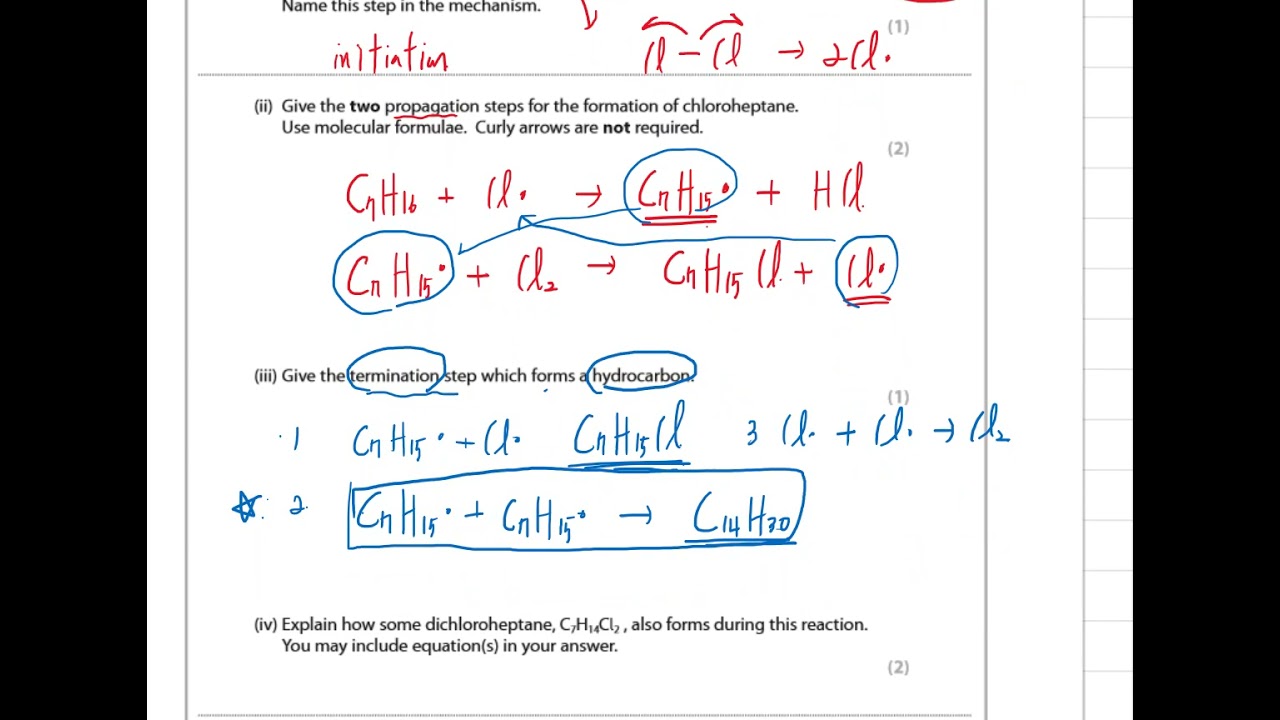 Name this step in the mechanism.
(1)
initiation Cl – Cl → 2Cl•
(ii) Give the two propagation steps for the formation of chloroheptane.
Use molecular formulae. Curly arrows are not required.
(2)
C₇H₁₆ + Cl• → C₇H₁₅• + HCl
C₇H₁₅• + Cl₂ → C₇H₁₅Cl + Cl•
(iii) Give the termination step which forms a hydrocarbon.
(1)
1 C₇H₁₅• + Cl• C₇H₁₅Cl 3 Cl• + Cl• → Cl₂
2 C₇H₁₅• + C₇H₁₅• → C₁₄H₃₀
(iv) Explain how some dichloroheptane, C₇H₁₄Cl₂ , also forms during this reaction.
You may include equation(s) in your answer.
(2)